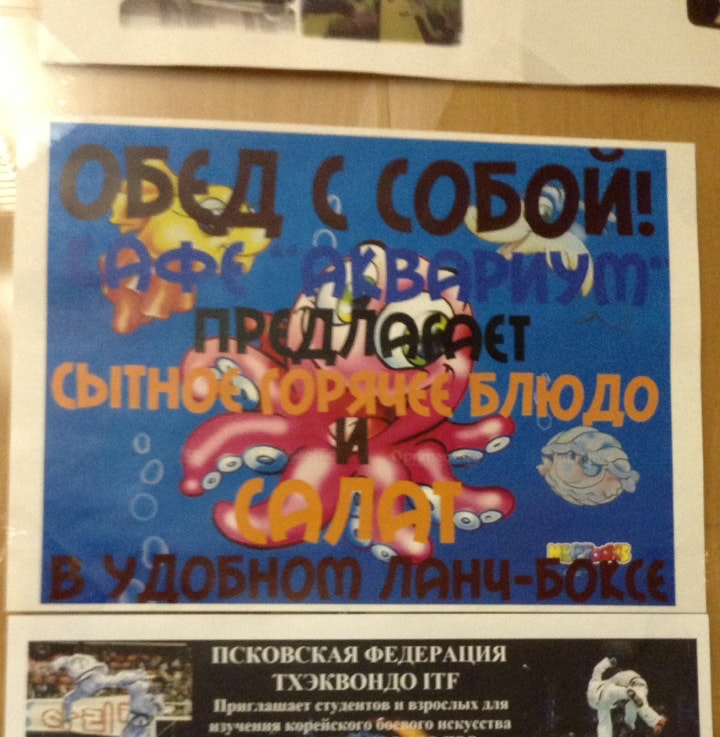 ОБЕД С СОБОЙ!
КАФЕ "АКВАРИУМ"
ПРЕДЛАГАЕТ
СЫТНОЕ ГОРЯЧЕЕ БЛЮДО
И
САЛАТ
В УДОБНОМ ЛАНЧ-БОКСЕ
ПСКОВСКАЯ ФЕДЕРАЦИЯ
ТХЭКВОНДО ITF
Приглашает студентов и взрослых для
изучения корейского боевого искусства